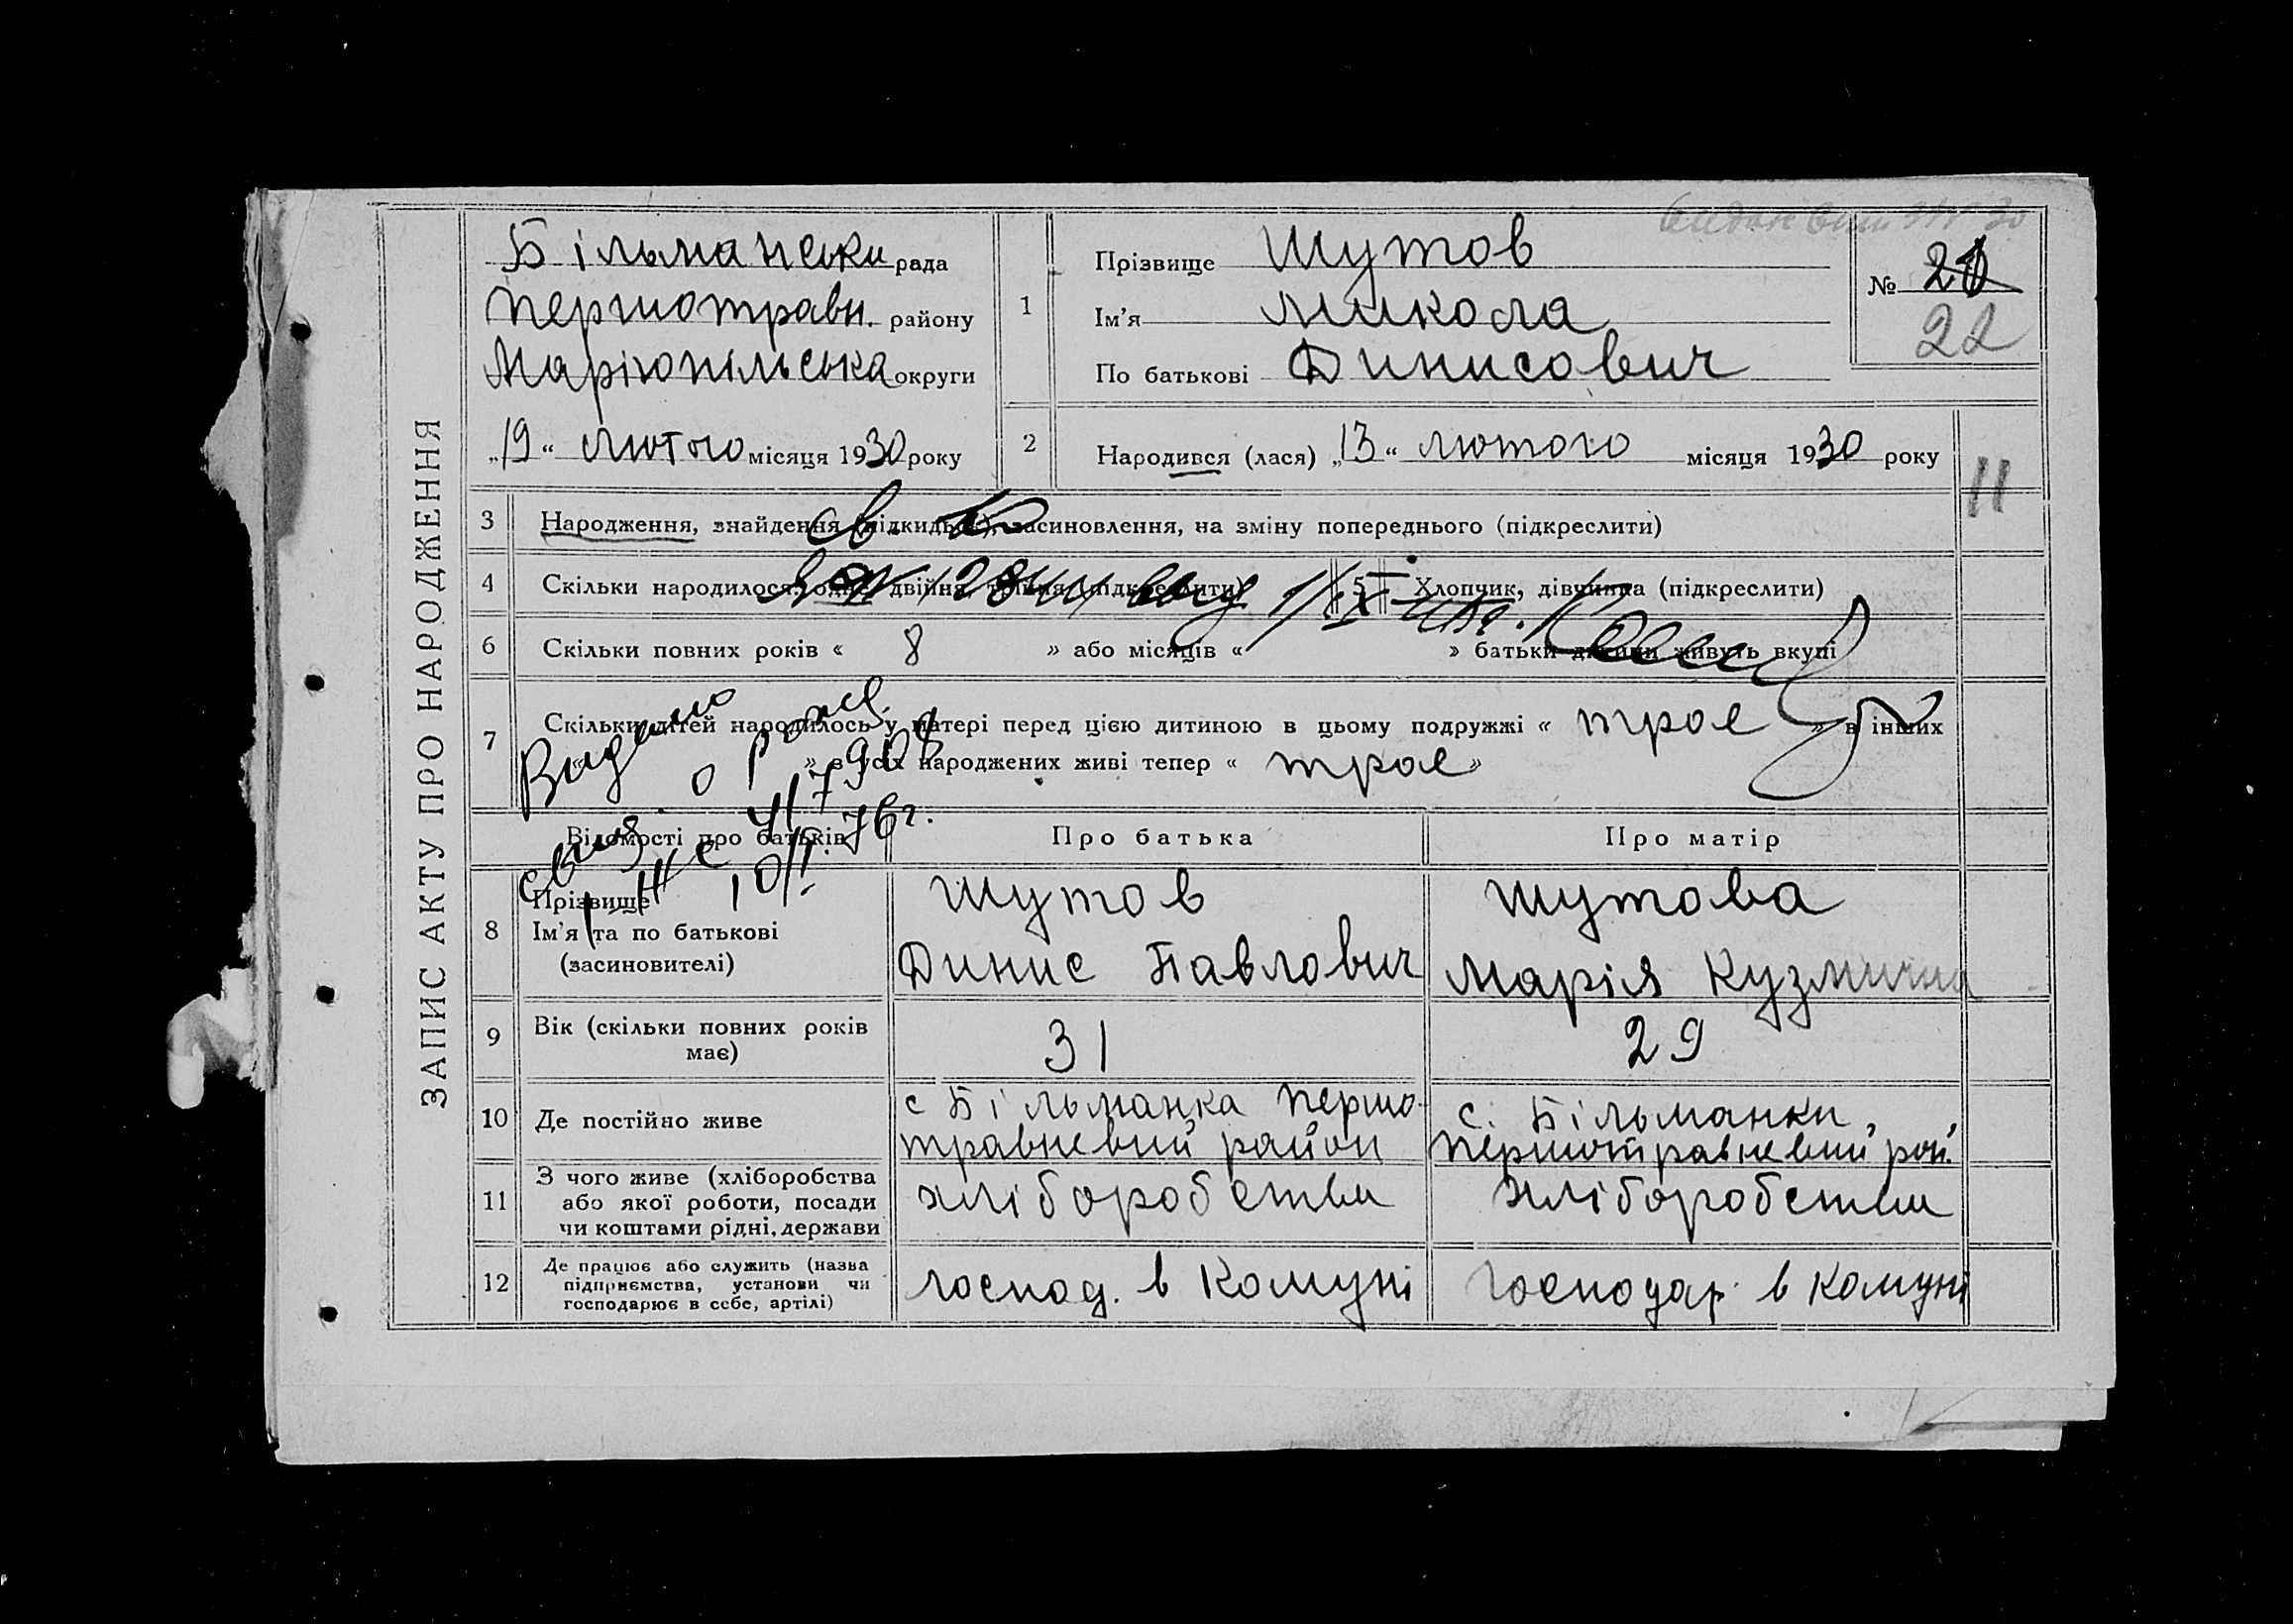 ЗАПИС АКТУ ПРО НАРОДЖЕННЯ
Більманськи рада
Першотравн. району
Маріюпільська округи
„19“ лютого місяця 1930 року
1
Прізвище Шутов
Ім'я Микола
По батькові Динисович
№ 21
22
2
Народився (лася) „13“ лютого місяця 1930 року
11
3 Народження, знайдення (підкидька), засиновлення, на зміну попереднього (підкреслити)
4 Скільки народилося: одне, двійня, трійня (підкреслити)
5 Хлопчик, дівчинка (підкреслити)
6 Скільки повних років « 8 » або місяців « » батьки дитини живуть вкупі
7 Скільки дітей народилось у матері перед цією дитиною в цьому подружжі « трое » в інших
« » з усіх народжених живі тепер « трое »
Видано
о рожд.
76 г.
Відомості про батьків
Про батька
Про матір
8 Прізвище
Ім'я та по батькові
(засиновителі)
Шутов
Динис Павлович
Шутова
Марія Кузмична
9 Вік (скільки повних років має)
31
29
10 Де постійно живе
с Більманка Першо-
травневий район
с. Більманки,
Першотравневий рай.
11 З чого живе (хліборобства
або якої роботи, посади
чи коштами рідні, держави
хліборобства
хліборобства
12 Де працює або служить (назва
підприємства, установи чи
господарює в себе, артілі)
господ. в Комуні
господар. в Комуні